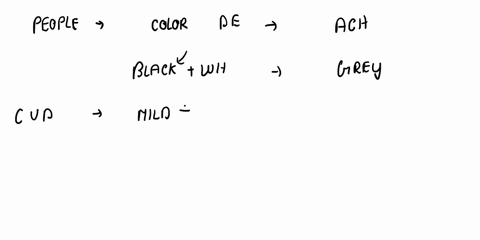 PEOPLE → COLOR DE → ACH
BLACK + WH → GREY
CVD → MILD -